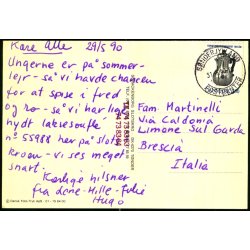 Kære Alle 29/5 90
Ungerne er på sommer-
lejr - så vi havde chancen
for at spise i fred
og ro - så vi har lige
nydt laksesoufflé
nº 55988 her på slots-
kroen - vi ses meget
snart.
Kærlig hilsner
fra dene - Hille - Julie
Hugo
Fam Martinelli
Via Caldonia
Limone Sul Garda
Brescia
Italia